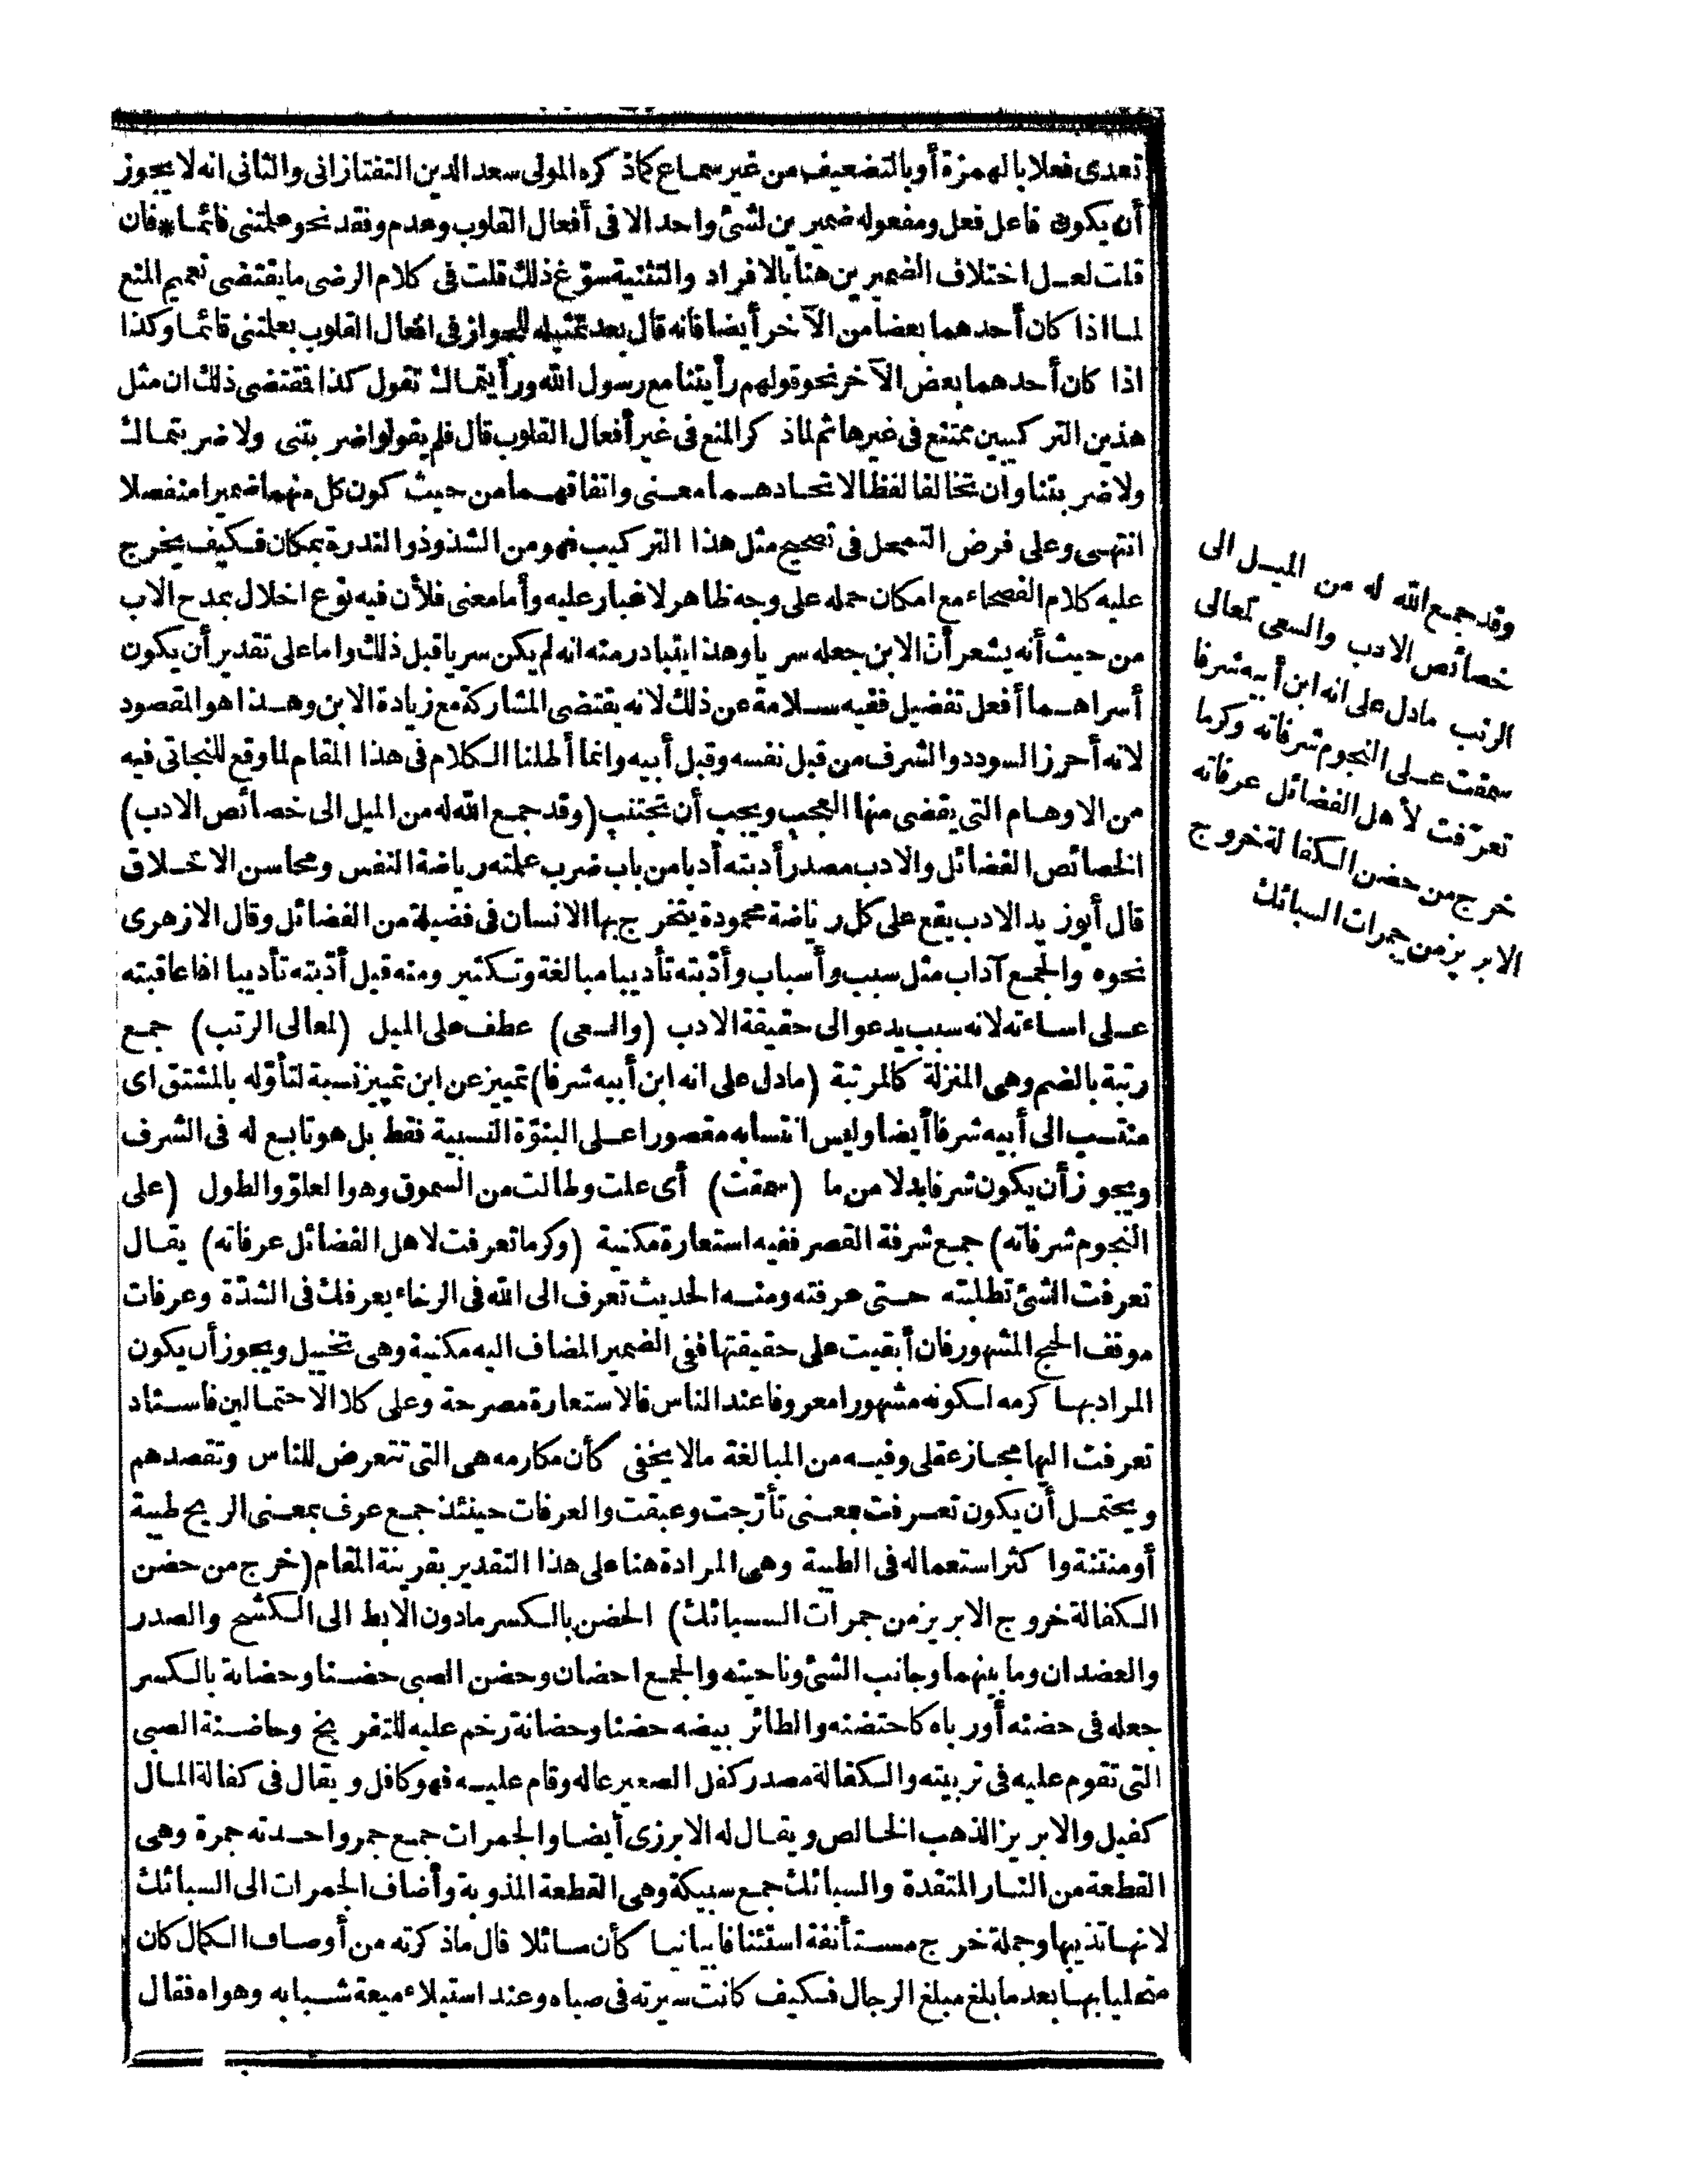 تعدى فعلا بالهمزة أو بالتضعيف من غير سماع كما ذكره المولى سعد الدين التفتازانى والثانى انه لا يجوز
أن يكون فاعل فعل ومفعوله ضميرين لشئ واحد الا فى أفعال القلوب وعدم وفقد نحو علمتنى قائما * فان
قلت لعل اختلاف الضميرين هنا بالافراد والتثنية سوّغ ذلك قلت فى كلام الرضى ما يقتضى تعميم المنع
لما اذا كان أحدهما بعضا من الآخر أيضا فانه قال بعد تمثيله للجواز فى افعال القلوب بعلمتنى قائما وكذا
اذا كان أحدهما بعض الآخر نحو قولهم رأيتنا مع رسول الله ورأيتماك تقول كذا فقتضى ذلك ان مثل
هذين التركيبين ممتنع فى غيرها ثم لما ذكر المنع فى غير أفعال القلوب قال فلم يقولوا ضربتنى ولا ضربتماك
ولا ضربتنا وان تخالفا لفظا لاتحادهما معنى واتفاقهما من حيث كون كل منهما ضميرا منفصلا
انتهى وعلى فرض التمحل فى تصحيح مثل هذا التركيب فهو من الشذوذ والندرة بمكان فكيف يخرج
عليه كلام الفصحاء مع امكان حمله على وجه ظاهر لا غبار عليه وأما معنى فلأن فيه نوع اخلال بمدح الاب
من حيث أنه يشعر أنّ الابن جعله سريا وهذا يتبادر منه انه لم يكن سريا قبل ذلك واما على تقدير أن يكون
أسراهما أفعل تفضيل ففيه سلامة عن ذلك لانه يقتضى المشاركة مع زيادة الابن وهذا هو المقصود
لانه أحرز السودد والشرف من قبل نفسه وقبل أبيه وانما أطلنا الكلام فى هذا المقام لما وقع للنجاتى فيه
من الاوهام التى يقضى منها العجب ويجب أن تجتنب (وقد جمع الله له من الميل الى خصائص الادب)
الخصائص الفضائل والادب مصدر أدبته أدبا من باب ضرب علمته رياضة النفس ومحاسن الاخلاق
قال أبو زيد الادب يقع على كل رياضة محمودة يتخرج بها الانسان فى فضيلة من الفضائل وقال الازهرى
نحوه والجمع آداب مثل سبب وأسباب وأدّبته تأديبا مبالغة وتكثير ومنه قيل أدّبته تأديبا اذا عاقبته
على اساءته لانه سبب يدعو الى حقيقة الادب (والسعى) عطف على الميل (لمعالى الرتب) جمع
رتبة بالضم وهى المنزلة كالمرتبة (ما دل على انه ابن أبيه شرفا) تمييز عن ابن تمييز نسبة لتأوّله بالمشتق اى
منتسب الى أبيه شرفا أيضا وليس انتسابه مقصورا على البنوّة النسبية فقط بل هو تابع له فى الشرف
ويجوز أن يكون شرفا بدلا من ما (سمقت) أى علت وطالت من السموق وهو العلوّ والطول (على
النجوم شرفاته) جمع شرفة القصر ففيه استعارة مكنية (وكرما تعرفت لاهل الفضائل عرفاته) يقال
تعرفت الشئ تطلبته حتى عرفته ومنه الحديث تعرف الى الله فى الرخاء يعرفك فى الشدّة وعرفات
موقف الحج المشهور فان أبقيت على حقيقتها ففى الضمير المضاف اليه مكنية وهى تخييل ويجوز أن يكون
المراد بها كرمه لكونه مشهورا معروفا عند الناس فالاستعارة مصرحة وعلى كلا الاحتمالين فاسناد
تعرفت اليها مجاز عقلى وفيه من المبالغة مالا يخفى كأن مكارمه هى التى تتعرض للناس وتقصدهم
ويحتمل أن يكون تعرفت بمعنى تأرّجت وعبقت والعرفات حينئذ جمع عرف بمعنى الريح طيبة
أو منتنة واكثر استعماله فى الطيبة وهى المرادة هنا على هذا التقدير بقرينة المقام (خرج من حضن
الكفالة خروج الابريز من جمرات السبائك) الحضن بالكسر مادون الابط الى الكشح والصدر
والعضدان وما بينهما وجانب الشئ وناحيته والجمع احضان وحضن الصبى حضنا وحضانة بالكسر
جعله فى حضنه أو رباه كاحتضنه والطائر بيضه حضنا وحضانة رخم عليه للتفريخ وحاضنة الصبى
التى تقوم عليه فى تربيته والكفالة مصدر كفل الصغير عاله وقام عليه فهو كافل ويقال فى كفالة المال
كفيل والابريز الذهب الخالص ويقال له الابرزى أيضا والجمرات جمع جمر واحدته جمرة وهى
القطعة من النار المتقدة والسبائك جمع سبيكة وهى القطعة المذوبة وأضاف الجمرات الى السبائك
لانها تذيبها وجملة خرج مستأنفة استئنافا بيانيا كأن سائلا قال ما ذكرته من أوصاف الكمال كان
متحليا بها بعد ما بلغ مبلغ الرجال فكيف كانت سيرته فى صباه وعند استيلاء ميعة شبابه وهواه فقال
وقد جمع الله له من الميل الى
خصائص الادب والسعى لمعالى
الرتب مادل على انه ابن أبيه شرفا
سمقت على النجوم شرفاته وكرما
تعرّفت لأهل الفضائل عرفاته
خرج من حضن الكفالة خروج
الابريز من جمرات السبائك